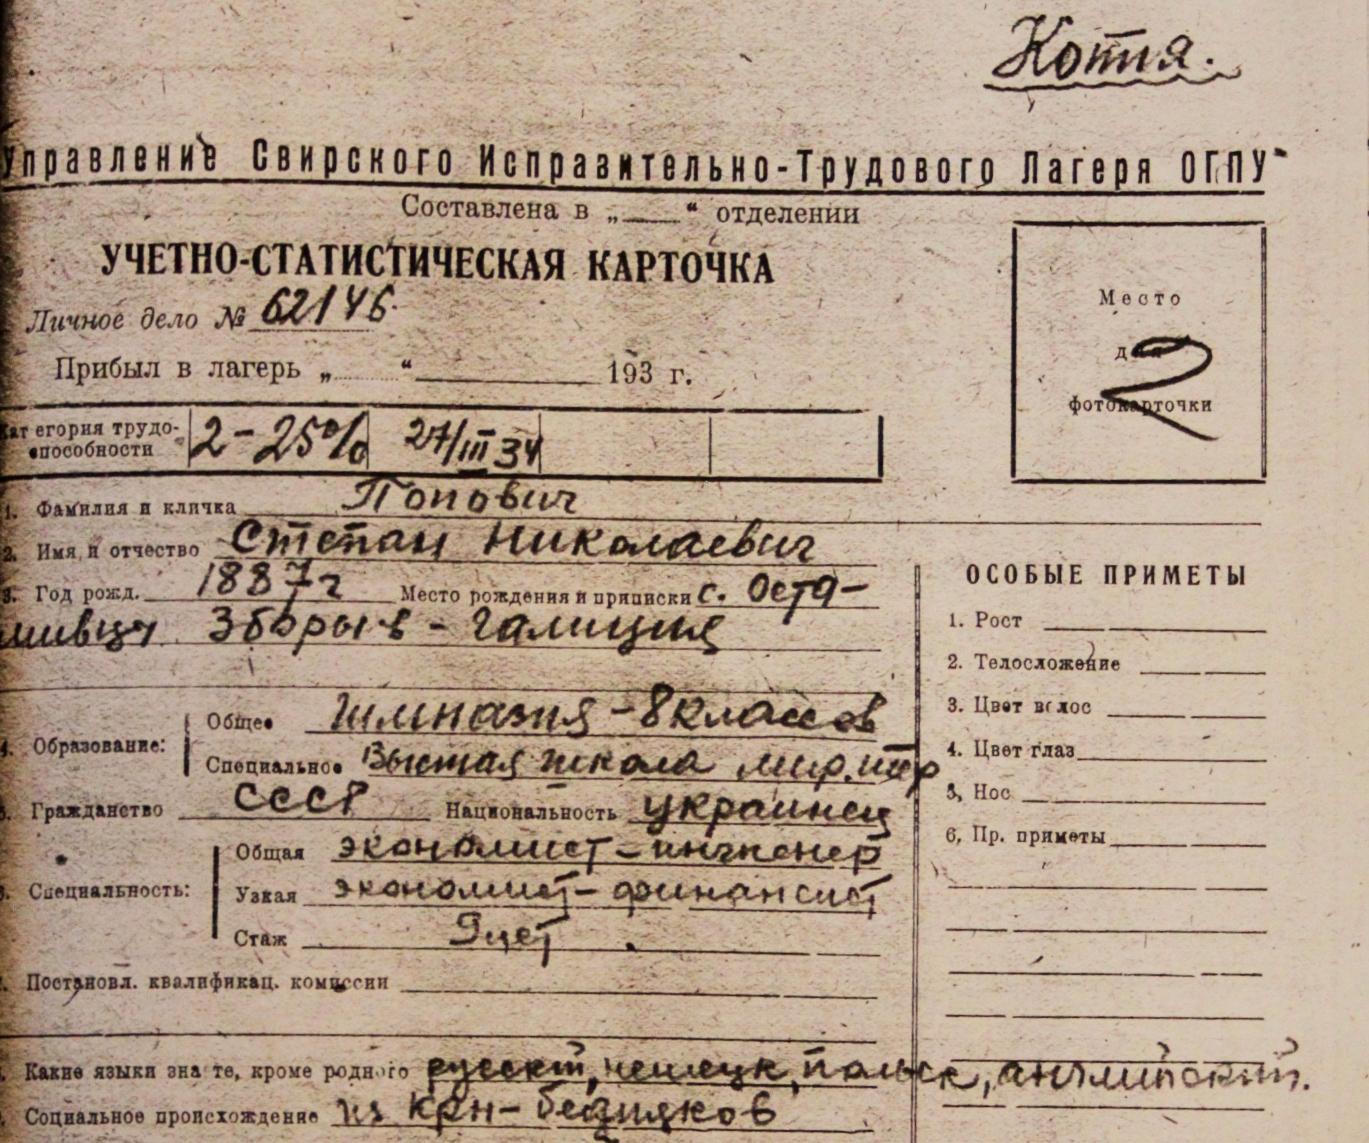 Копия.
Управление Свирского Исправительно-Трудового Лагеря ОГПУ
Составлена в „ “ отделении
УЧЕТНО-СТАТИСТИЧЕСКАЯ КАРТОЧКА
Личное дело № 62146
Место
для
фотокарточки
2
Прибыл в лагерь „ “ 193 г.
Категория трудо-
способности
2-25% 27/III 34
1. Фамилия и кличка Попович
2. Имя и отчество Степан Николаевич
3. Год рожд. 1887г Место рождения и приписки с. Оста-
шивцы Зборыв - Галиция
4. Образование: Общее Гимназия - 8 классов
Специальное Высшая школа
5. Гражданство СССР Национальность украинец
6. Специальность: Общая экономист-инженер
Узкая экономист-финансист
Стаж 9 лет
7. Постановл. квалификац. комиссии
8. Какие языки знаете, кроме родного русский, немецк, польск, английский.
9. Социальное происхождение из крн-бедняков
ОСОБЫЕ ПРИМЕТЫ
1. Рост
2. Телосложение
3. Цвет волос
4. Цвет глаз
5, Нос
6, Пр. приметы